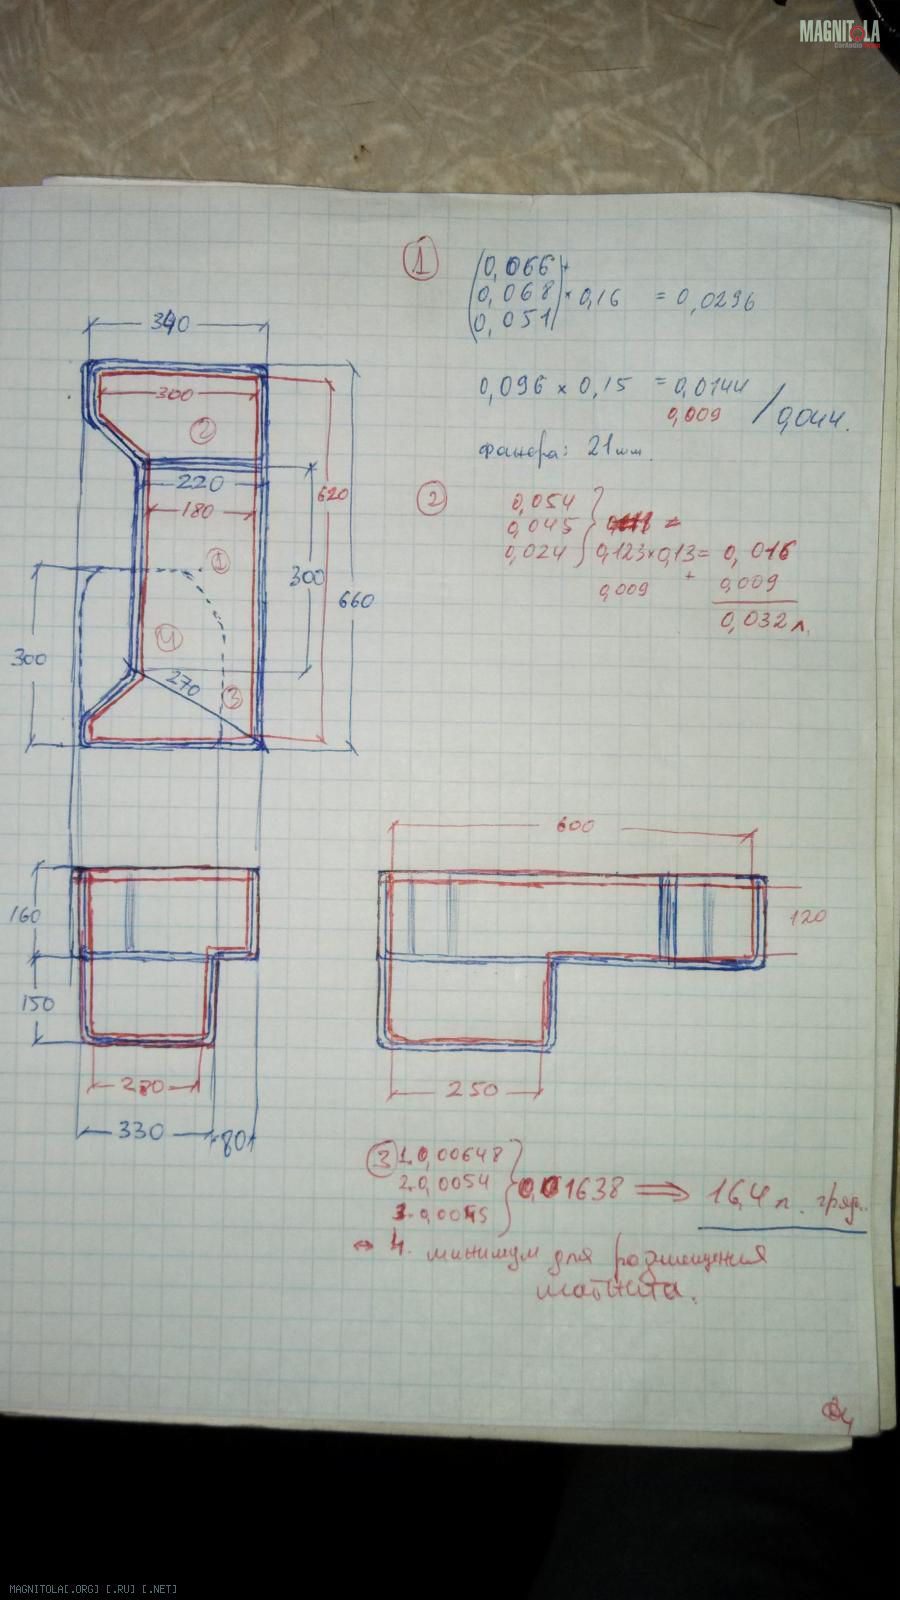 MAGNITOLA
CarAudio
1
0,066 +
0,068 × 0,16 = 0,0296
0,051
340
0,096 × 0,15 = 0,0144
0,009 / 0,044.
300
фанера: 21 мм.
2
220
620
2
0,054
180
0,045
0,024 0,123×0,13= 0,016
+
1
300
0,009 0,009
660
0,032 л.
4
300
270
3
600
160
120
150
250
330
80
3 1. 0,00648
2. 0,0054 0,01638 ⟹ 16,4 л.
3. 0,0045
4. минимум для размещения
магнита.
MAGNITOLA[.ORG] [.RU] [.NET]